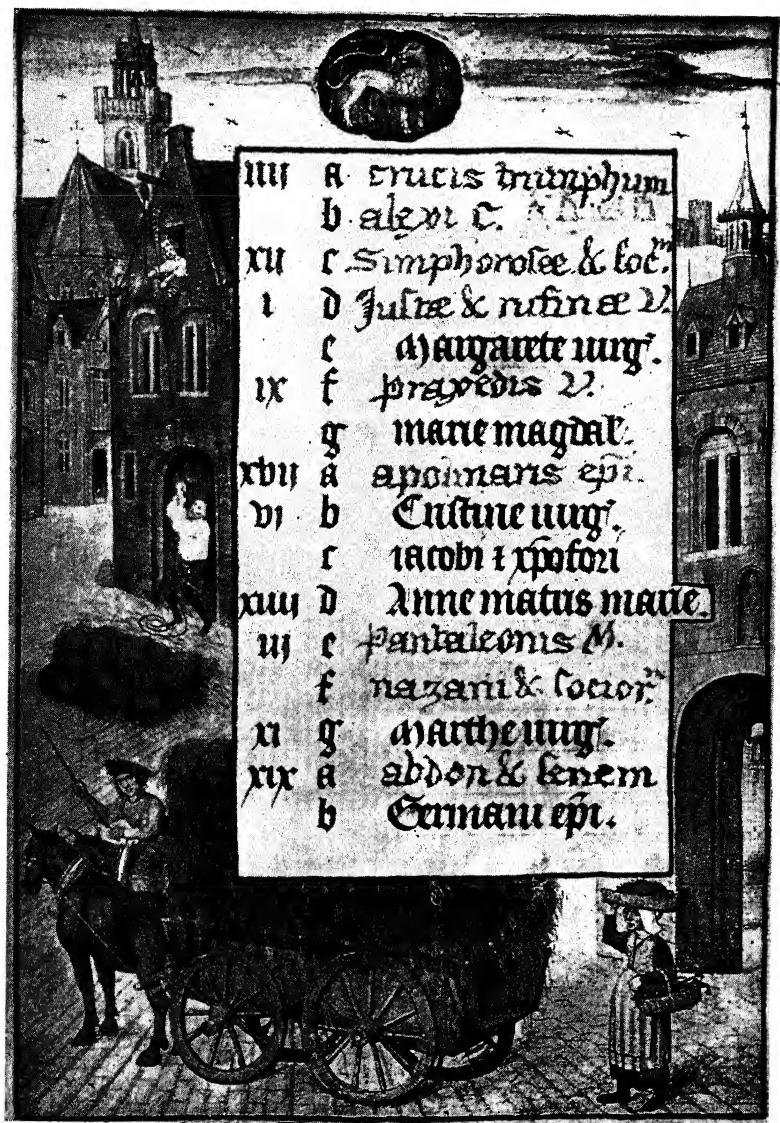 iiij a crucis triumphum
b alexi C.
xij c Simphorosæ & soc.
i d Justæ & rufinæ V.
e Margarete uirg.
ix f praxedis V.
g marie magdal.
xvij a apolinaris epi.
vj b Cristine uirg.
c iacobi ⁊ xpofori
xiiij d Anne matris marie.
iij e Pantaleonis M.
f nazarii & socior.
xj g Marthe uirg.
xix a abdon & senem
b Germani epi.